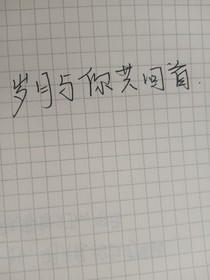 岁月与你共回首.